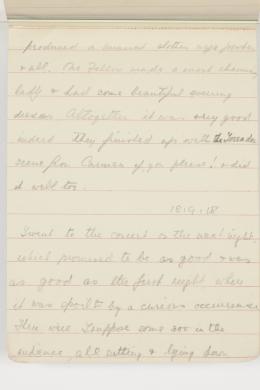 produced a musical clothes wigs powder
& all. One Fellow made a most charming
lady & had some beautiful evening
dresses. Altogether it was very good
indeed They finished up with the Toreador
scene from Carmen if you please! & did
it well too.
18.9.18
I went to the concert on the next night,
which promised to be as good & was
as good as the first night when
it was spoilt by a curious occurrence
There were I suppose some 300 in the
audience, all sitting & lying down